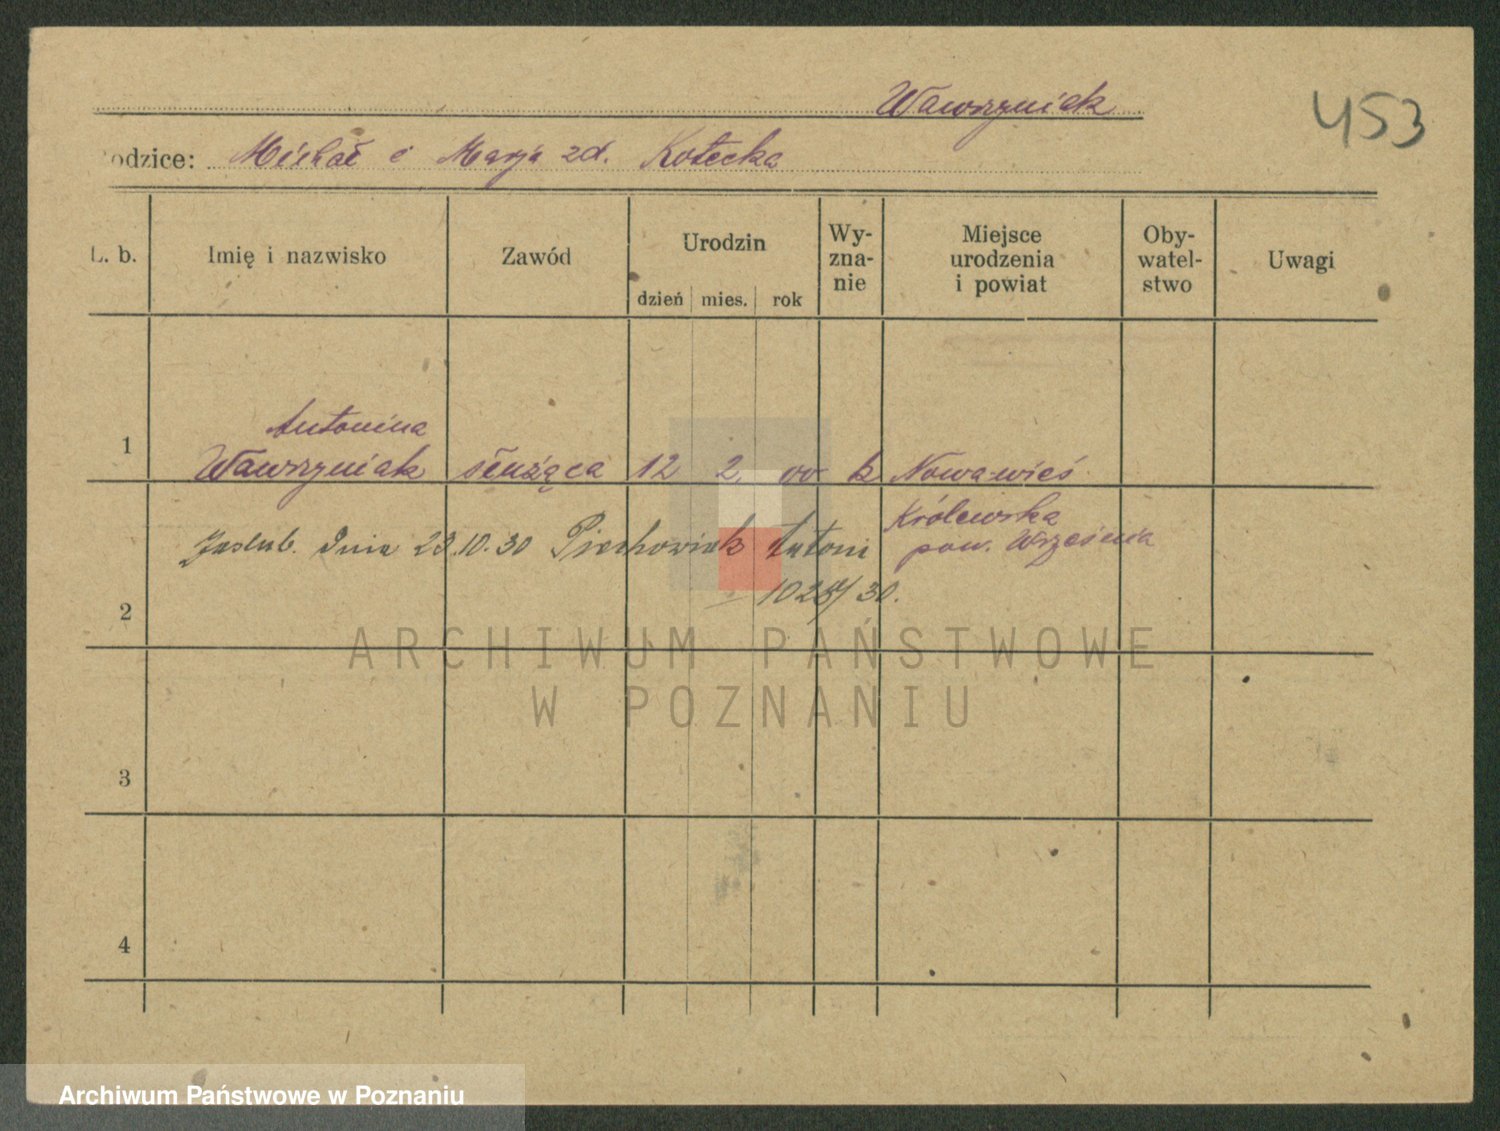 Wawrzyniak
453
odzice: Michał i Marja zd. Kotecka
L. b.
Imię i nazwisko
Zawód
Urodzin
dzień mies. rok
Wy-
zna-
nie
Miejsce
urodzenia
i powiat
Oby-
watel-
stwo
Uwagi
1
Antonina
Wawrzyniak służąca 12 2. 00 k Nowa-wieś
Królewska
pow. Września
Zaślub. dnia 23.10.30 Piechowiak Antoni
/30.
2
ARCHIWUM PAŃSTWOWE
W POZNANIU
3
4
Archiwum Państwowe w Poznaniu